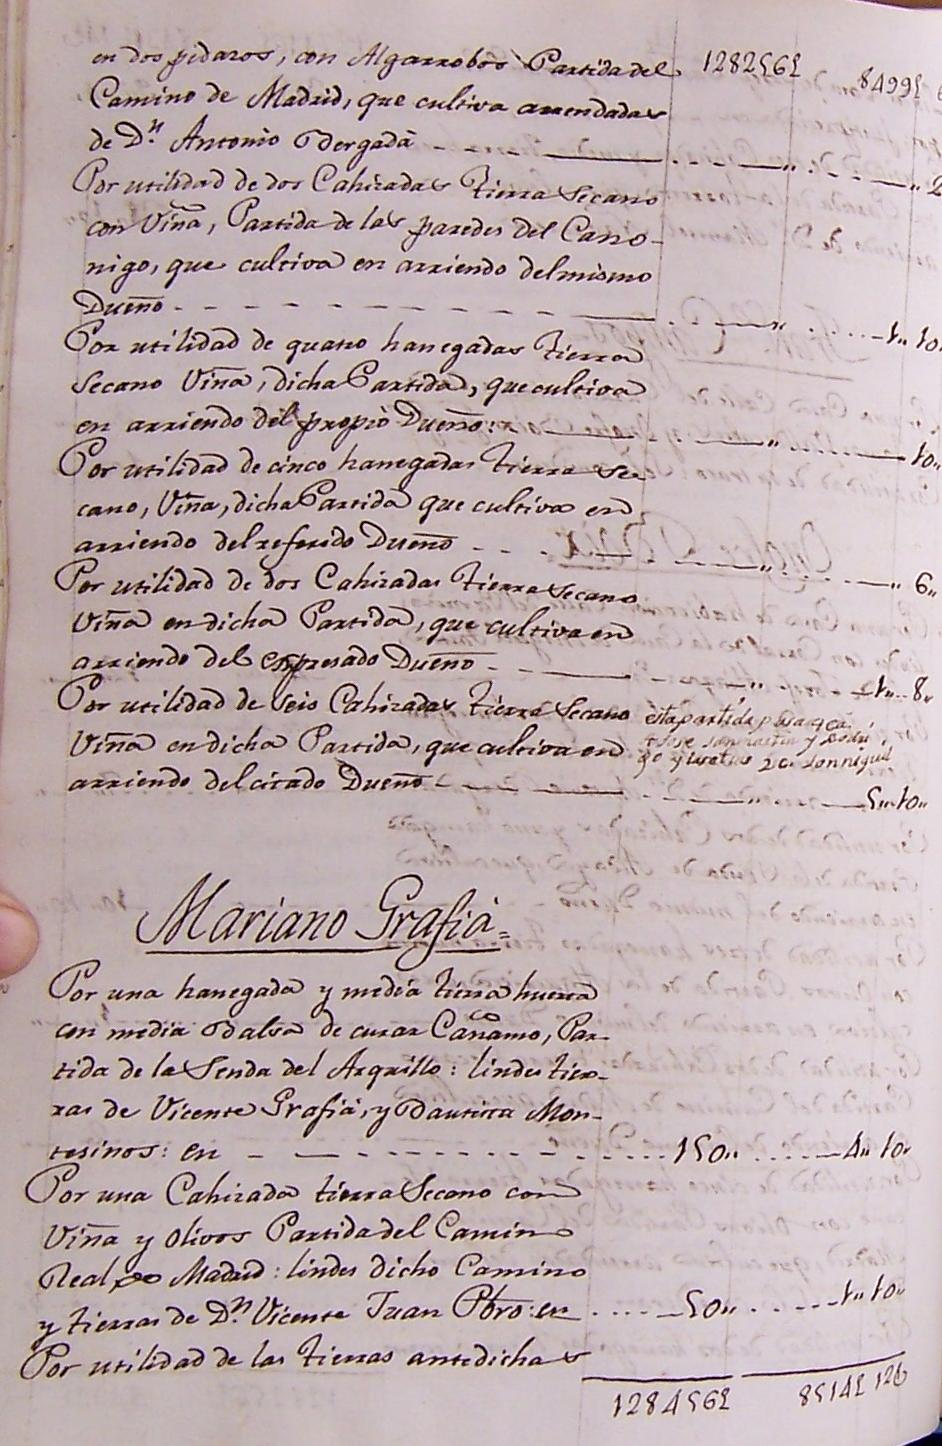 en dos pidazos, con Algarrobos Partida del 128256 84996
Camino de Madrid, que cultiva arrendadas
de Dn. Antonio Bergadá
Por utilidad de dos Cahizadas Tierra Secano
con Viña, Partida de las paredes del Cano-
nigo, que cultiva en arriendo del mismo
Dueño 1 10
Por utilidad de quatro hanegadas Tierra
Secano Viña, dicha Partida, que cultiva
en arriendo del propio Dueño: 10
Por utilidad de cinco hanegadas Tierra Se-
cano, Viña, dicha Partida que cultiva en
arriendo del referido Dueño 6
Por utilidad de dos Cahizadas Tierra Secano
Viña en dicha Partida, que cultiva en
arriendo del expresado Dueño 1 8
Por utilidad de Seis Cahizadas Tierra Secano esta partida
Viña en dicha Partida, que cultiva en
arriendo del citado Dueño 10
Mariano Grafiá=
Por una hanegada y media tierra huerta
con media Balsa de curar Cañamo, Par-
tida de la Senda del Arquillo: lindes tier-
ras de Vicente Grafiá, y Bautista Mon-
tesinos: en 150 4 10
Por una Cahizada tierra Secano con
Viña y olivos Partida del Camino
Real de Madrid: lindes dicho Camino
y tierras de Dn. Vicente Juan Pbro: en 50 1 10
Por utilidad de las tierras antedichas